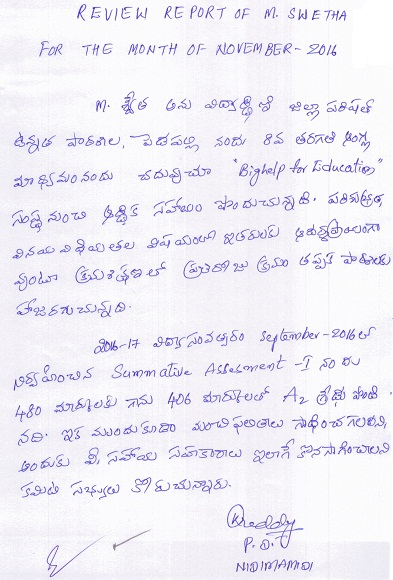 REVIEW REPORT OF M. SWETHA
FOR THE MONTH OF NOVEMBER-2016
M. శ్వేత అను విద్యార్థిని జిల్లా పరిషత్
ఉన్నత పాఠశాల, పెడపల్లి నందు 8వ తరగతి ఆంగ్ల
మాధ్యమంనందు చదువుచూ "Bighelp for Education"
సంస్థ నుంచి ఆర్థిక సహాయం పొందుచున్నది. పరిశుభ్రత
వినయ విధేయతల విషయంలో ఇతరులకు ఆదర్శప్రాయంగా
వుంటూ క్రమశిక్షణలో ప్రతిరోజు క్రమం తప్పక పాఠశాలకు
హాజరగుచున్నది.
2016-17 విద్యా సంవత్సరం September-2016లో
నిర్వహించిన Summative Assessment-I నందు
480 మార్కులకు గాను 406 మార్కులతో A2 గ్రేడు పొంది
నది. ఇక ముందుకూడా మంచి ఫలితాలు సాధించగలదని,
అందుకు మీ సహాయ సహకారాలు ఇలాగే కొనసాగించాలని
కమిటి సభ్యులు కోరుచున్నారు.
P. D.
NIDIMAMIDI